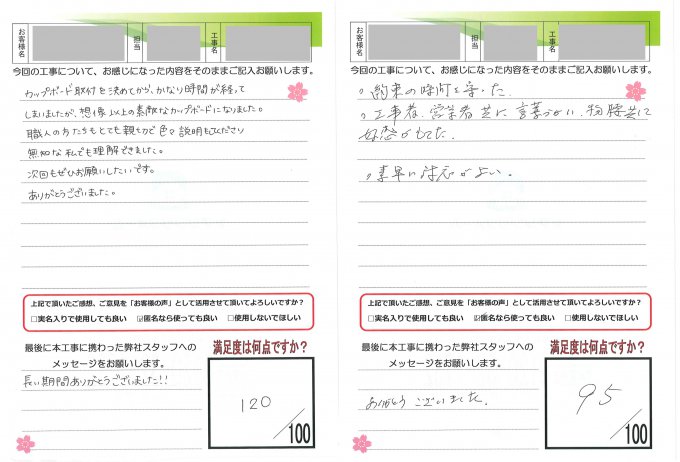 お客様名
担当
工事名
今回の工事について、お感じになった内容をそのままご記入お願いします。
カップボード取付を決めてから、かなり時間が経って
しまいましたが、想像以上の素敵なカップボードになりました。
職人の方たちもとても親切で色々説明もくださり
無知な私でも理解できました。
次回もぜひお願いしたいです。
ありがとうございました。
上記で頂いたご感想、ご意見を「お客様の声」として活用させて頂いてよろしいですか？
□実名入りで使用しても良い ☑匿名なら使っても良い □使用しないでほしい
最後に本工事に携わった弊社スタッフへの
メッセージをお願いします。
長い期間ありがとうございました!!
満足度は何点ですか？
120
/100
お客様名
担当
工事名
今回の工事について、お感じになった内容をそのままご記入お願いします。
約束の時間を守った。
工事者、営業者共に言葉づかい、物腰共に
好感がもてた。
素早い対応がよい。
上記で頂いたご感想、ご意見を「お客様の声」として活用させて頂いてよろしいですか？
□実名入りで使用しても良い ☑匿名なら使っても良い □使用しないでほしい
最後に本工事に携わった弊社スタッフへの
メッセージをお願いします。
ありがとうございました。
満足度は何点ですか？
95
/100